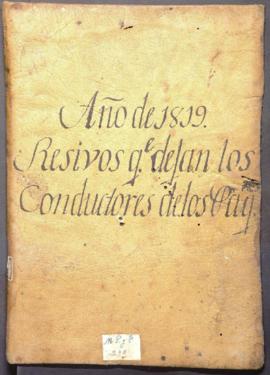 Año de 1819.
Resivos q.e dejan los
Conductores de los Paq.